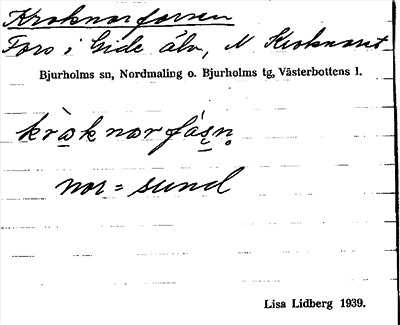 Kroknorforsen
Fors i Gide älv, N Kroknoret
Bjurholms sn, Nordmaling o. Bjurholms tg, Västerbottens l.
kròknorfásn
nor = sund
Lisa Lidberg 1939.